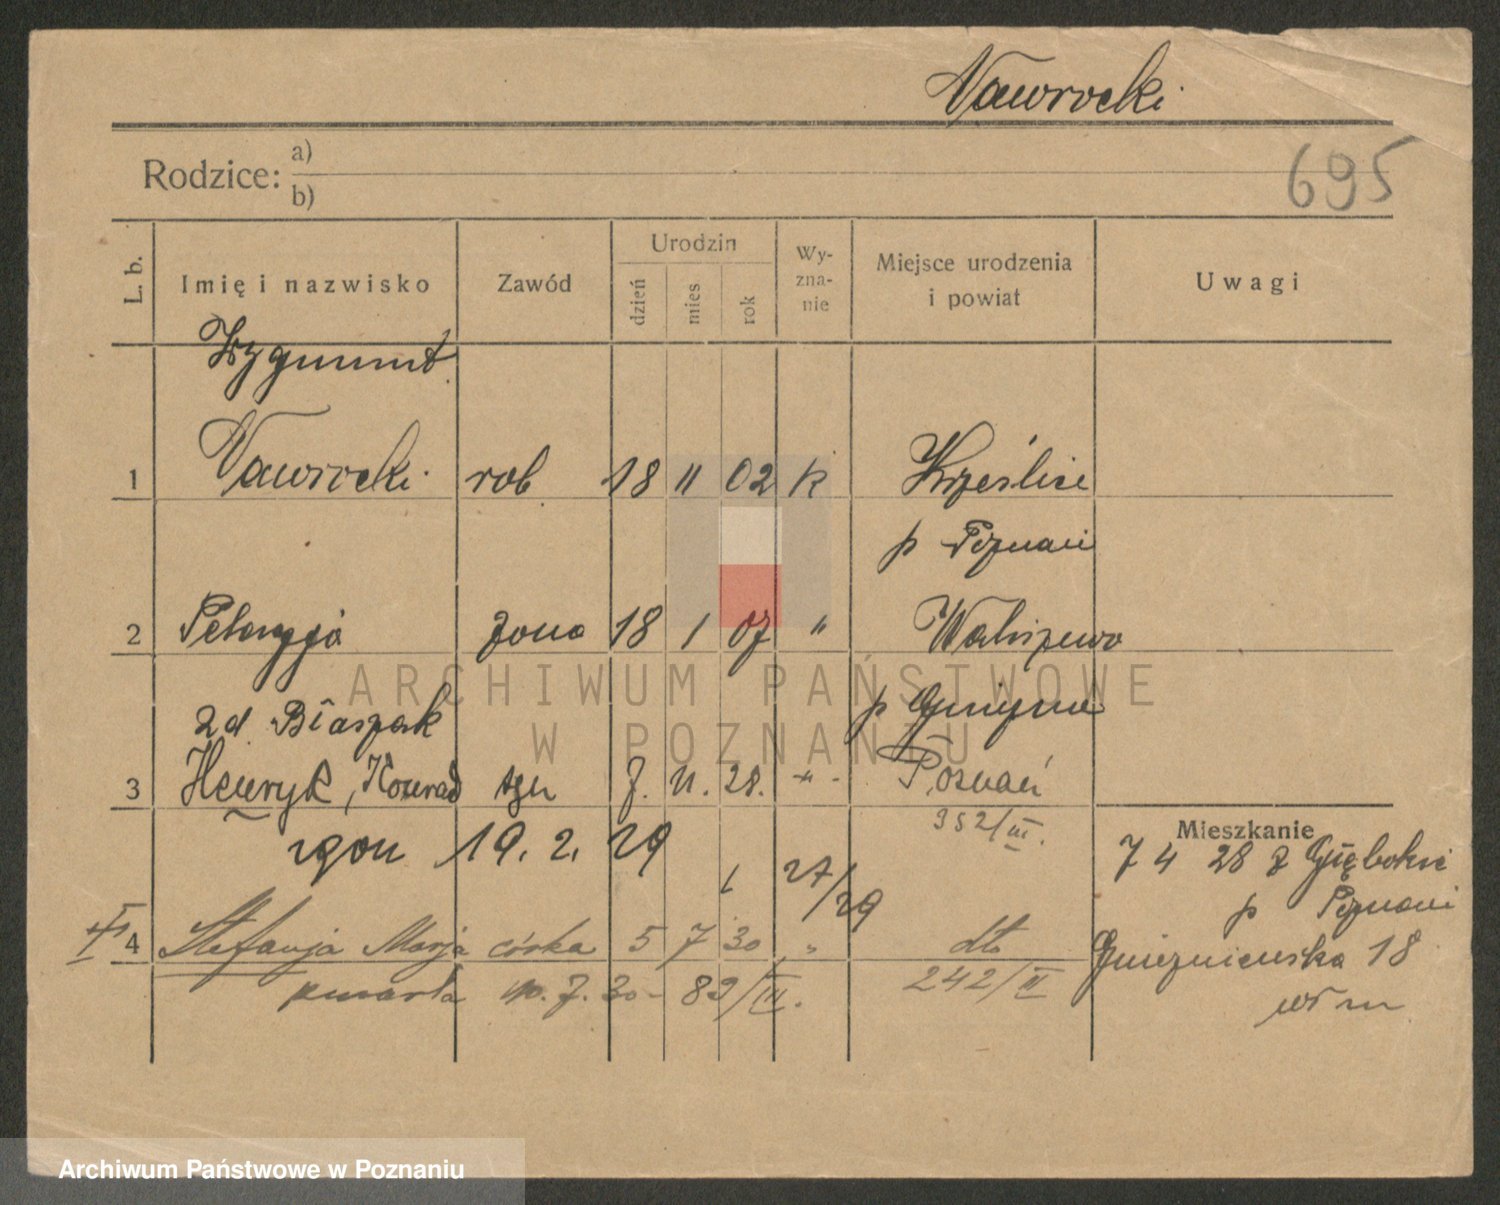 Nawrocki
695
Rodzice: a)
b)
L. b.
Imię i nazwisko
Zawód
Urodzin
dzień
mies
rok
Wy-
zna-
nie
Miejsce urodzenia
i powiat
Uwagi
Zygmunt
1 Nawrocki rob 18 11 02 k Krześlice
p Poznań
2 Pelagja żona 18 1 07 " Waliszewo
p Gniezno
zd Błaszak
3 Henryk, Konrad syn 7. 11. 28. " Poznań
352/III.
zgon 19. 2. 29
27/29
Mieszkanie
7 4 28 z Głębokie
p Poznań
4 Stefanja Marja córka 5 7 30 " dto
242/II
zmarła 10. 7. 30 - 89/III.
Gnieznieńska 18
wł m
ARCHIWUM PAŃSTWOWE
W POZNANIU
Archiwum Państwowe w Poznaniu